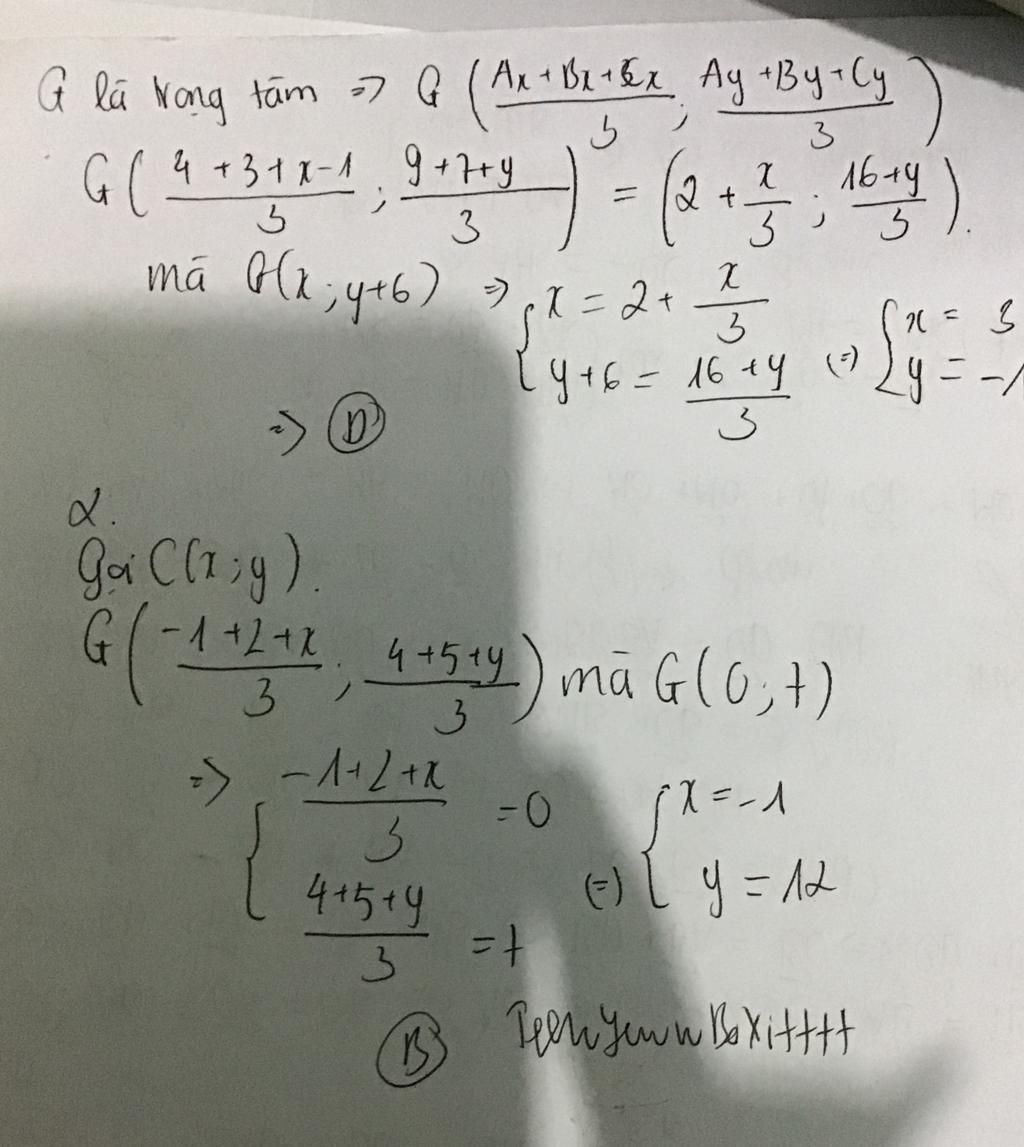 G là trọng tâm => G ( (Ax+Bx+Cx)/3 ; (Ay+By+Cy)/3 )
G ( (4+3+x-1)/3 ; (9+7+y)/3 ) = (2 + x/3 ; (16+y)/3 ).
mà G(x;y+6) => { x = 2 + x/3
y+6 = (16+y)/3 (=) { x = 3
y = -1
=> (D)
2.
Gọi C(x;y).
G ( (-1+2+x)/3 ; (4+5+y)/3 ) mà G(0;7)
=> { (-1+2+x)/3 = 0
(4+5+y)/3 = 7 (=) { x = -1
y = 12
(B)